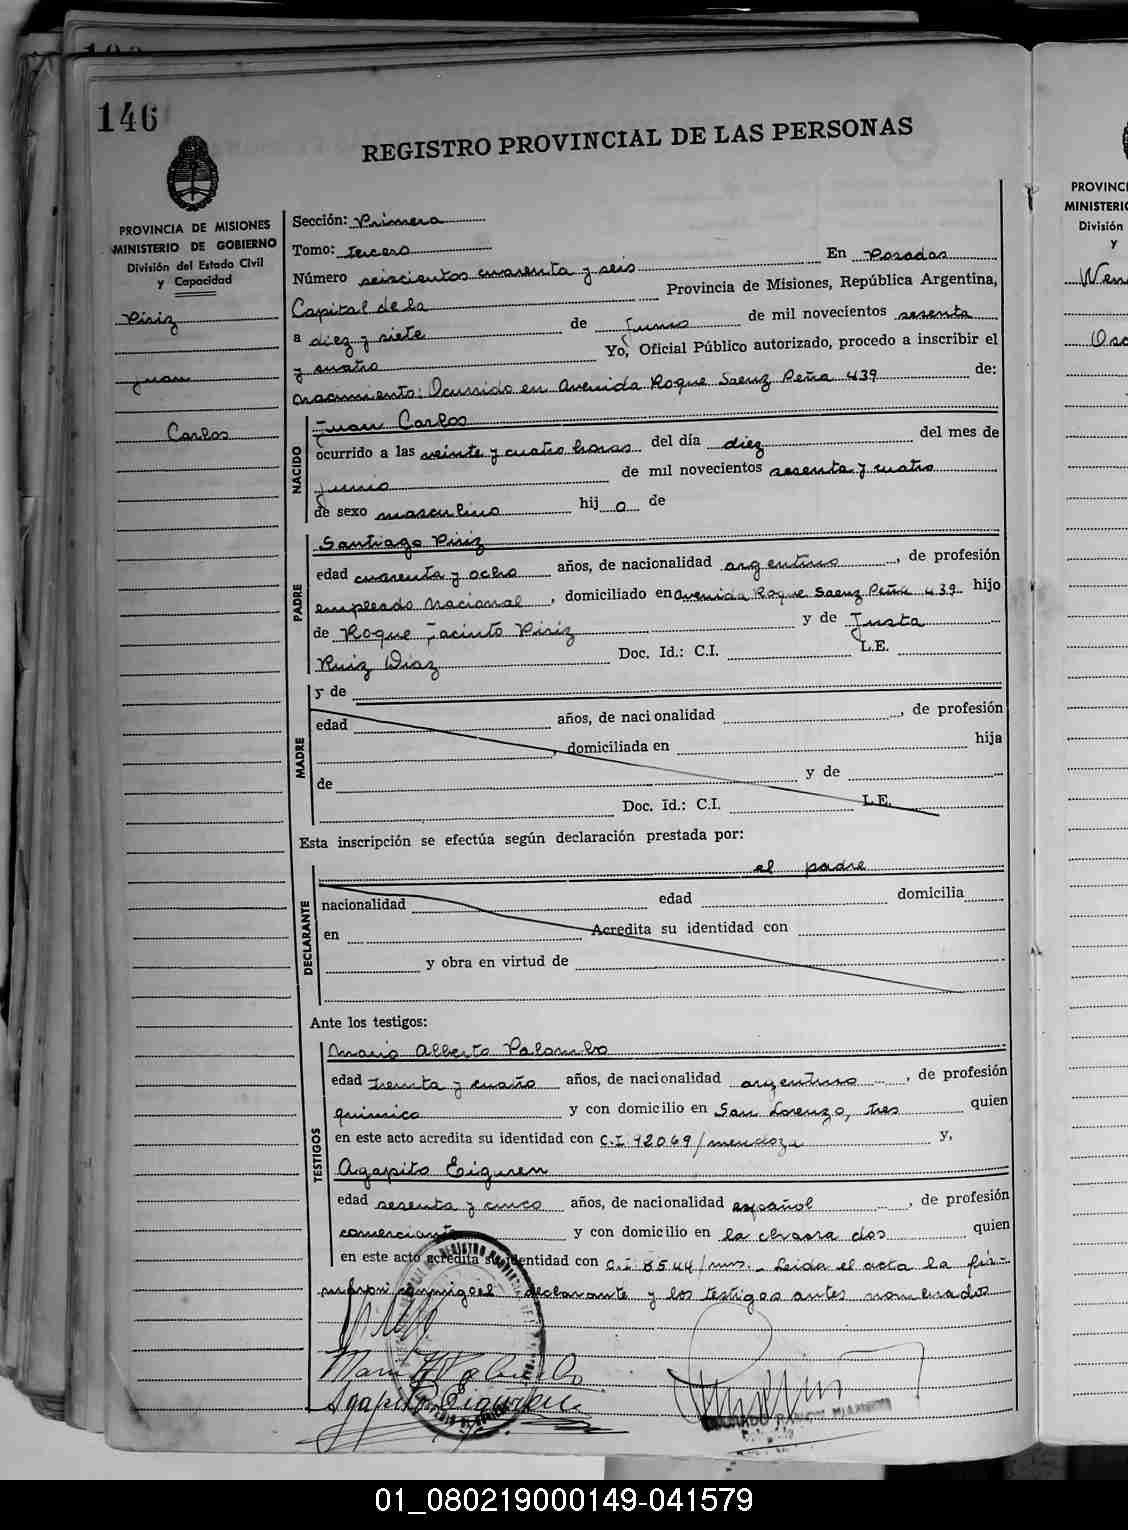 146
REGISTRO PROVINCIAL DE LAS PERSONAS
PROVINCIA DE MISIONES
MINISTERIO DE GOBIERNO
División del Estado Civil
y Capacidad
Piriz
Juan
Carlos
Sección: Primera
Tomo: tercero
Número seiscientos cuarenta y seis En Posadas
Capital de la Provincia de Misiones, República Argentina,
a diez y siete de Junio de mil novecientos sesenta
y cuatro Yo, Oficial Público autorizado, procedo a inscribir el
nacimiento: Ocurrido en Avenida Roque Saenz Peña 439 de:
NACIDO
Juan Carlos
ocurrido a las veinte y cuatro horas del día diez del mes de
junio de mil novecientos sesenta y cuatro
de sexo masculino hij o de
PADRE
Santiago Piriz
edad cuarenta y ocho años, de nacionalidad argentino, de profesión
empleado nacional, domiciliado en avenida Roque Saenz Peña 439 hijo
de Roque Jacinto Piriz y de Justa
Ruiz Diaz Doc. Id.: C.I. L.E.
MADRE
y de
edad años, de nacionalidad , de profesión
, domiciliada en hija
de y de
Doc. Id.: C.I. L.E.
Esta inscripción se efectúa según declaración prestada por:
DECLARANTE
el padre
nacionalidad edad domicilia
en Acredita su identidad con
y obra en virtud de
Ante los testigos:
TESTIGOS
Mario Alberto Palombo
edad treinta y cuatro años, de nacionalidad argentino, de profesión
químico y con domicilio en San Lorenzo, tres quien
en este acto acredita su identidad con C.I 92069/mendoza y,
Agapito Eiguren
edad sesenta y cinco años, de nacionalidad español, de profesión
comerciante y con domicilio en la chacra dos quien
en este acto acredita su identidad con C.I 8544/mns. Leida el acta la fir-
maron conmigo el declarante y los testigos antes nombrados
Agapito Eiguren
PROVINCI
MINISTERIO
División
y
Wen
Osc
01_080219000149-041579